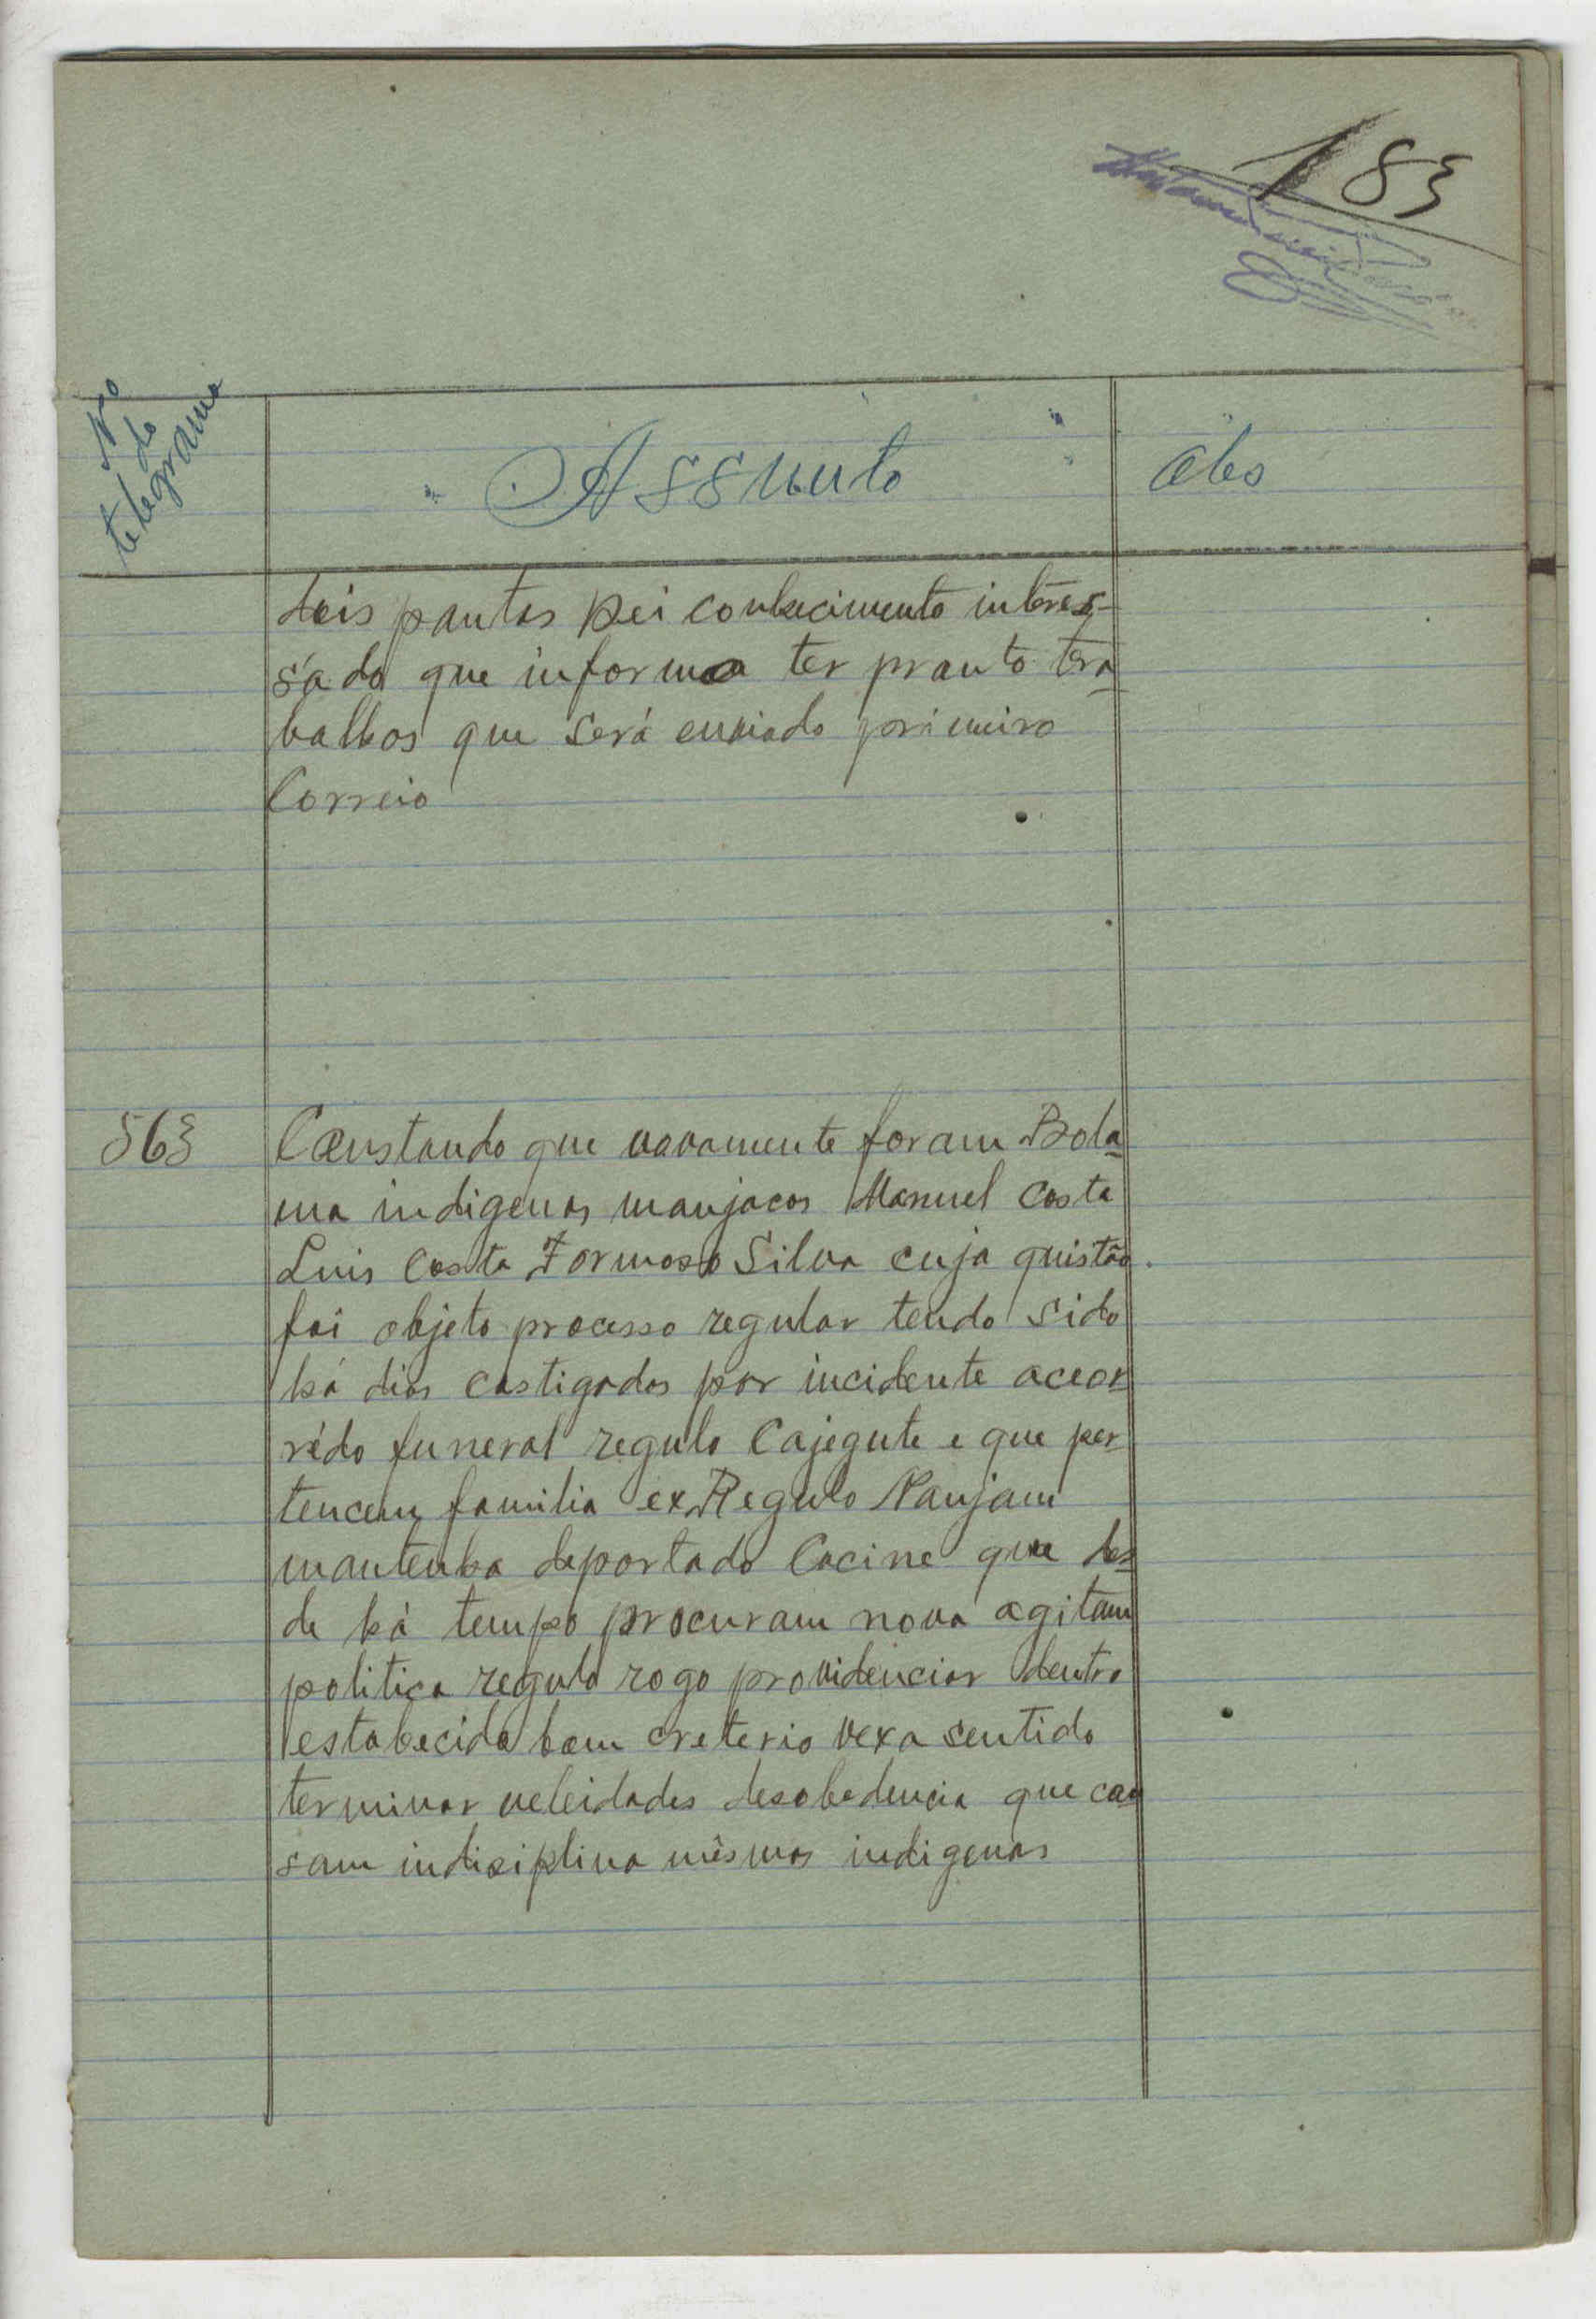 183
Nº do telegrama
Assunto
Obs
dois pontos Dei conhecimento interes-
sado que informa ter pronto tra-
balhos que será enviado primeiro
Correio
563
Constando que novamente foram Bola-
ma indigenas manjacos Manuel Costa
Luis Costa Formoso Silva cuja quistão
foi objeto processo regular tendo sido
há dias castigados por incidente acor
rido funeral regulo Cajegute e que per
tencem familia ex Regulo Nanjam
mantenha deportado Cacine que des-
de há tempo procuram nova agitam
politica regulo rogo providenciar dentro
estabecido bom creterio vexa sentido
terminar veleidades desobedencia que cau-
sam indisiplina mêsmos indigenas